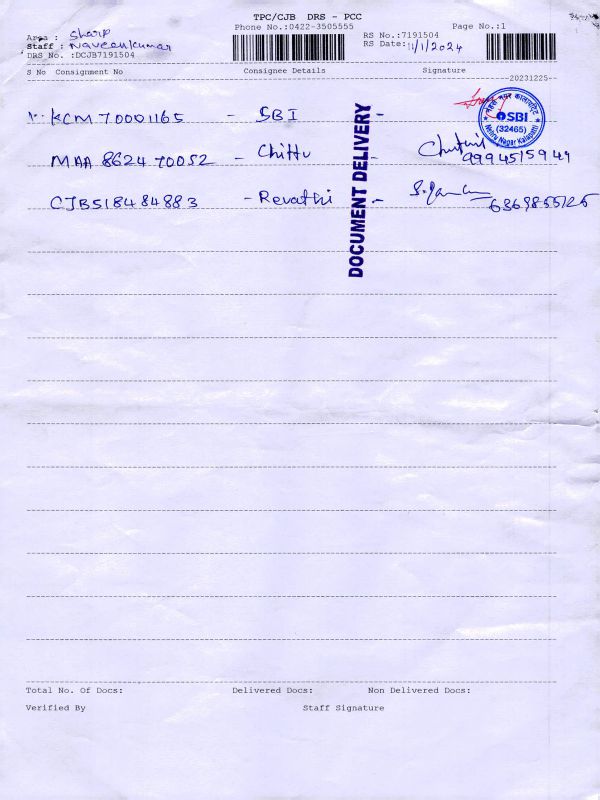 TPC/CJB DRS - PCC
Phone No.:0422-3505555
Page No.:1
Area : Sharp
Staff : Naveenkumar
DRS No. :DCJB7191504
RS No.:7191504
RS Date: 11/1/2024
S No Consignment No Consignee Details Signature
20231225
KCM 70001165 - SBI -
MAA 862470052 - Chittu - 9994515949
CJB518484883 - Revathi - 6369855125
SBI
(32465)
Nehru Nagar Kalapatti
DOCUMENT DELIVERY
Total No. Of Docs: Delivered Docs: Non Delivered Docs:
Verified By Staff Signature